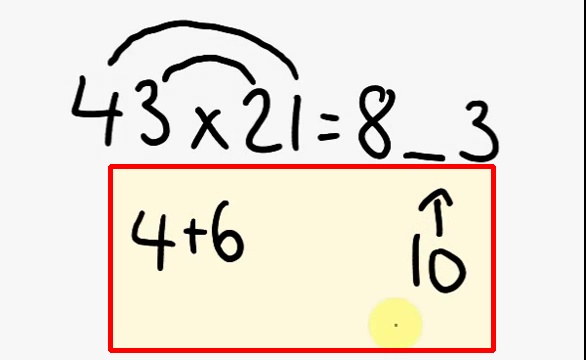 43 x 21 = 8_3
4+6 ↑
10